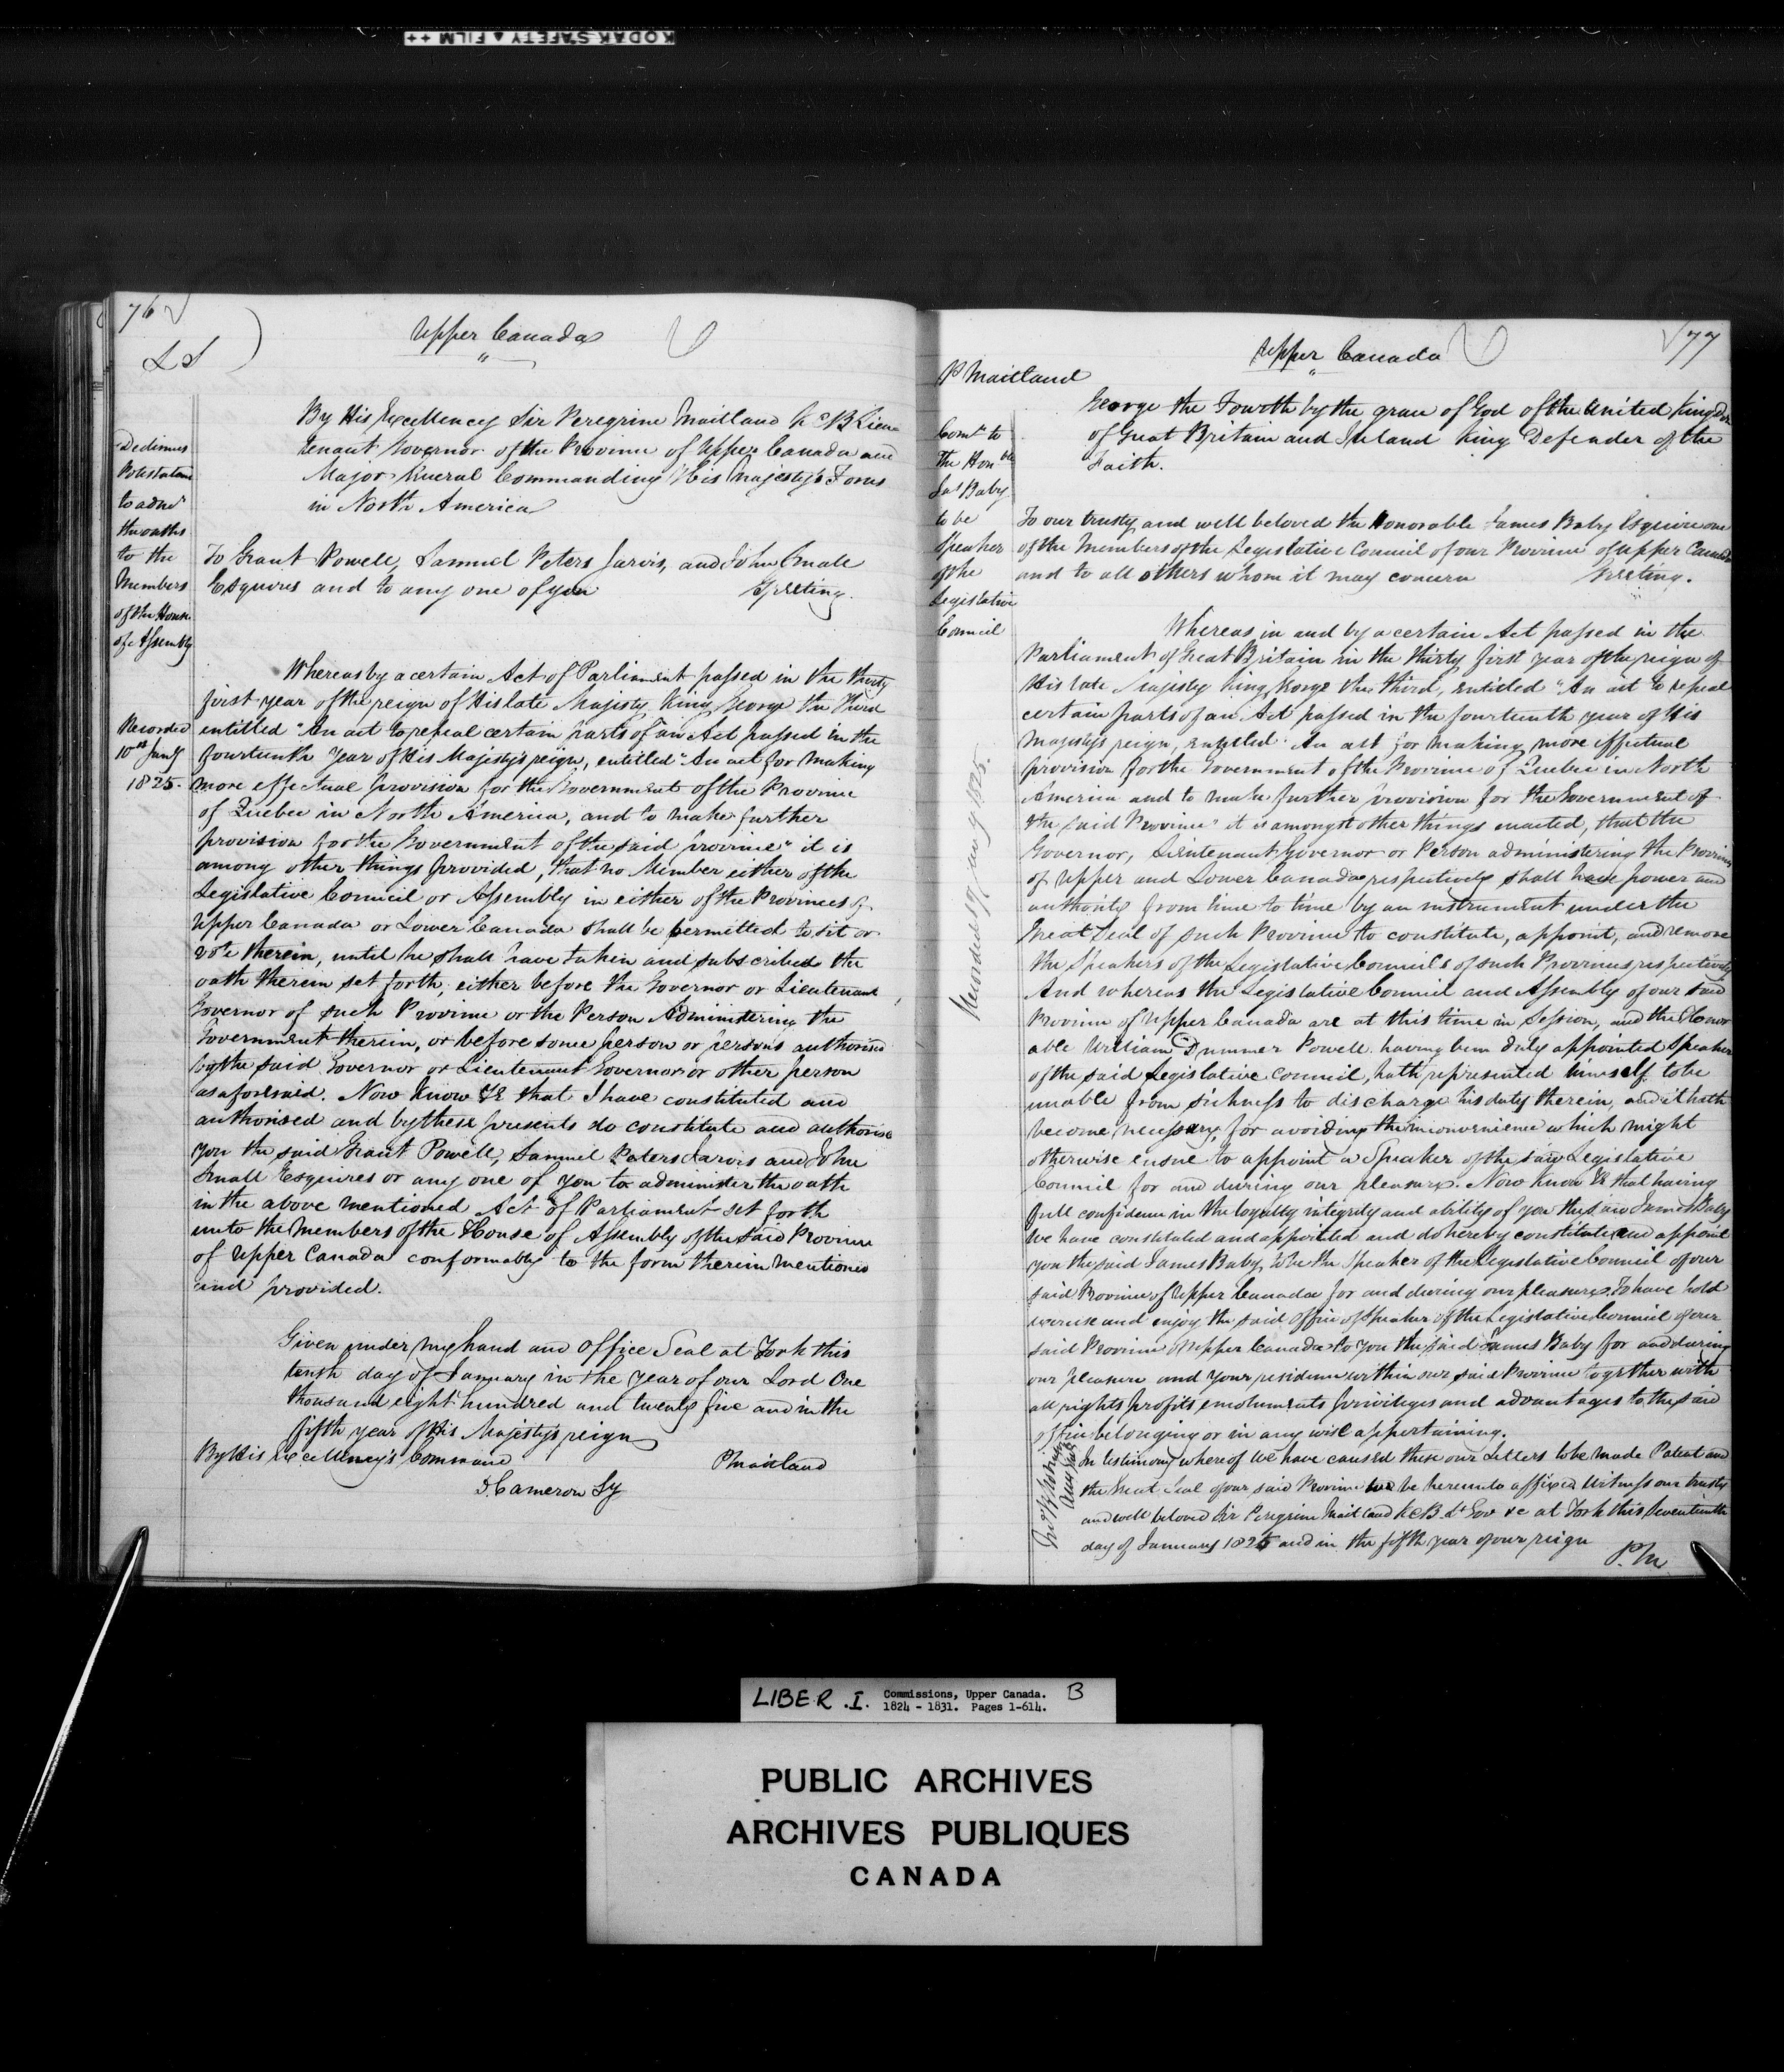 KODAK SAFETY FILM ++
76
L S
Upper Canada
By His Excellency Sir Peregrine Maitland K.C.B Lieu
tenant Governor of the Province of Upper Canada and
Major General Commanding His Majesty's Forces
in North America
Dedimus
Potestatem
to admr
the oaths
to the
Members
of the House
of Assembly
To Grant Powell, Samuel Peters Jarvis, and John Small
Esquires and to any one of you Greeting.
Recorded
10th Jany
1825.
Whereas by a certain Act of Parliament passed in the thirty
first year of the reign of His late Majesty King George the Third
entitled "An act to repeal certain parts of an Act passed in the
fourteenth Year of His Majesty's reign, entitled "An act for making
more effectual provision for the Government of the Province
of Quebec in North America, and to make further
provision for the Government of the said province" it is
among other things provided, that no Member either of the
Legislative Council or Assembly in either of the Provinces of
Upper Canada or Lower Canada shall be permitted to sit or
vote therein, until he shall have taken and subscribed the
oath therein set forth, either before the Governor or Lieutenant
Governor of such Province or the Person Administering the
Government therein, or before some person or persons authorised
by the said Governor or Lieutenant Governor or other person
as aforesaid. Now Know Ye that I have constituted and
authorised and by these presents do constitute and authorise
you the said Grant Powell, Samuel Peters Jarvis and John
Small Esquires or any one of you to administer the oath
in the above mentioned Act of Parliament set forth
unto the Members of the House of Assembly of the said Province
of Upper Canada conformably to the form therein mentioned
and provided.
Given under my hand and Office Seal at York this
tenth day of January in the year of our Lord One
thousand eight hundred and twenty five and in the
fifth year of His Majesty's reign
By His Excellency's Command P Maitland
D. Cameron Sy
77
Upper Canada
P Maitland
George the Fourth by the grace of God of the United Kingdom
of Great Britain and Ireland King Defender of the
Faith.
Comn to
The Honble
Jas Baby
to be
Speaker
of the
Legislative
Council
To our trusty and well beloved the Honorable James Baby Esquire one
of the Members of the Legislative Council of our Province of Upper Canada
and to all others whom it may concern Greeting.
Recorded 19 Jany 1825.
Whereas in and by a certain Act passed in the
Parliament of Great Britain in the thirty first year of the reign of
His late Majesty King George the third, entitled "An act to repeal
certain parts of an Act passed in the fourteenth year of His
Majesty's reign, entitled "An act for making more effectual
provision for the Government of the Province of Quebec in North
America and to make further provision for the Government of
the said Province" it is amongst other things enacted, that the
Governor, Lieutenant Governor or Person administering the Province
of Upper and Lower Canada respectively shall have power and
authority from time to time by an instrument under the
Great Seal of such Province to constitute, appoint, and remove
the Speakers of the Legislative Councils of such Provinces respectively
And whereas the Legislative Council and Assembly of our said
Province of Upper Canada are at this time in Session, and the Honor
able William Dummer Powell having been duly appointed Speaker
of the said Legislative Council, hath represented himself to be
unable from sickness to discharge his duty therein, and it hath
become necessary, for avoiding the inconvenience which might
otherwise ensue to appoint a Speaker of the said Legislative
Council for and during our pleasure. Now Know Ye that having
full confidence in the loyalty integrity and ability of you the said James Baby
We have constituted and appointed and do hereby constitute and appoint
you the said James Baby, to be the Speaker of the Legislative Council of our
said Province of Upper Canada for and during our pleasure. To have hold
exercise and enjoy the said Office of Speaker of the Legislative Council of our
said Province of Upper Canada to you the said James Baby for and during
our pleasure and your residence within our said Province together with
all rights profits emoluments privileges and advantages to the said
office belonging or in any wise appertaining.
In testimony whereof We have caused these our Letters to be made Patent and
the Great Seal of our said Province to be hereunto affixed Witness our trusty
and well beloved Sir Peregrine Maitland K.C.B. Lt Gov &c at York this Seventeenth
day of January 1825 and in the fifth year of our reign P.M.
LIBER .I. Commissions, Upper Canada. B
1824 - 1831. Pages 1-614.
PUBLIC ARCHIVES
ARCHIVES PUBLIQUES
CANADA